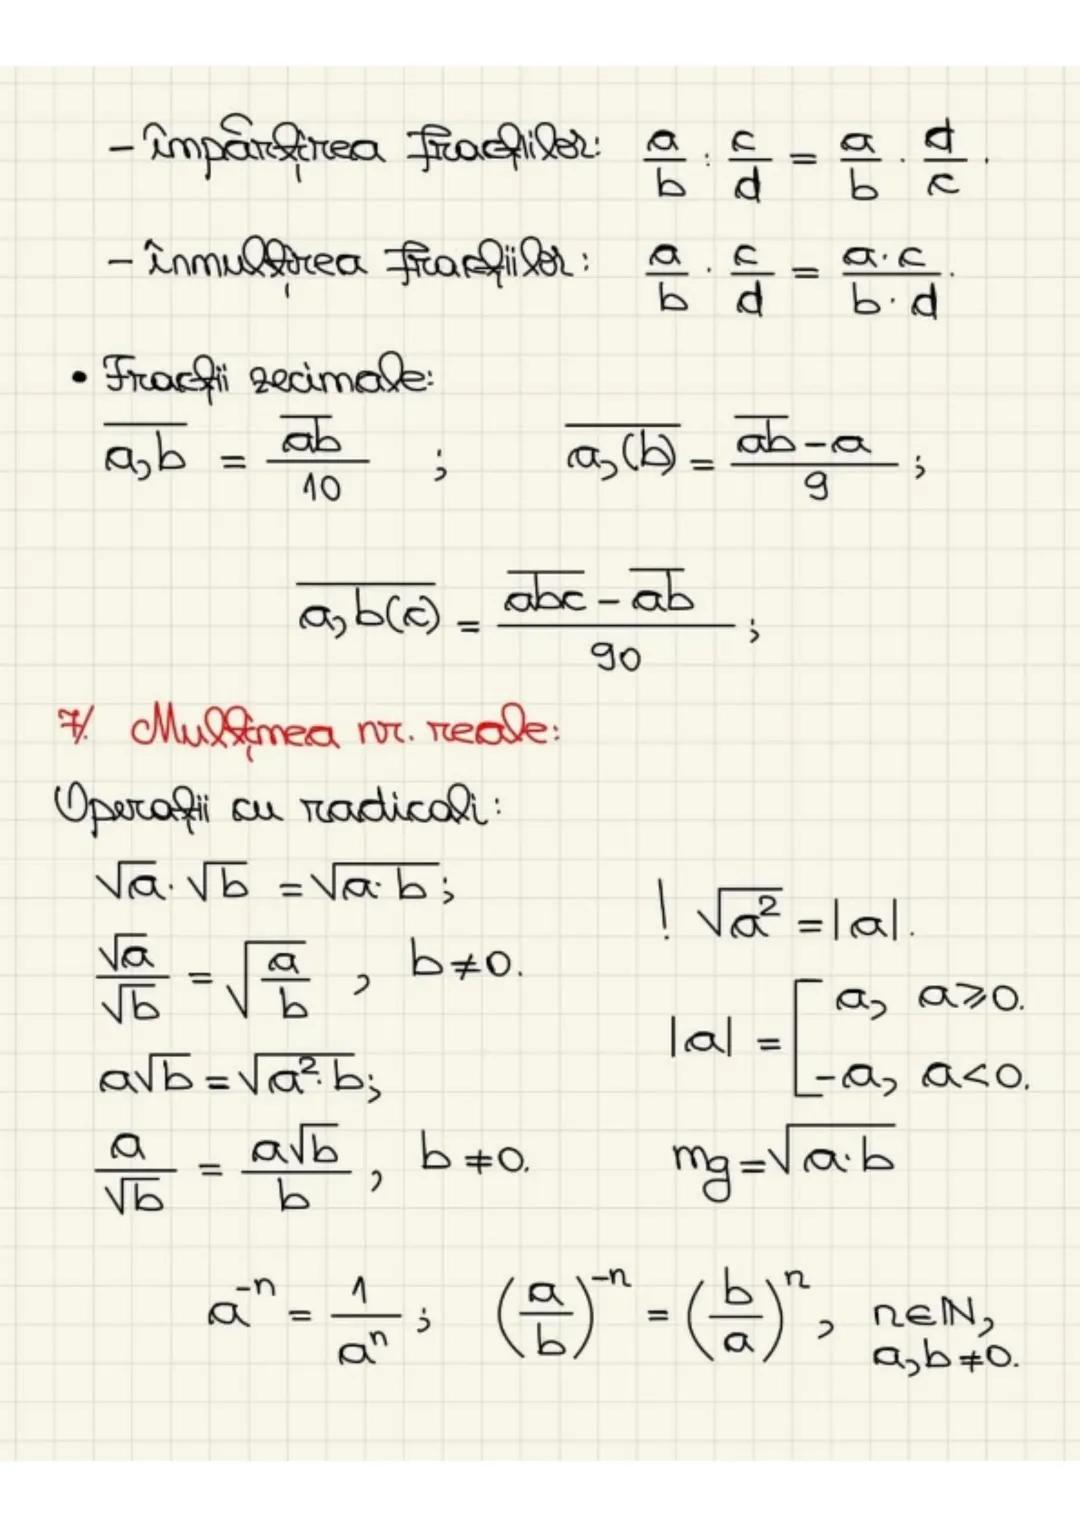 - împărțirea fracțiilor: a/b : c/d = a/b · d/c.
- înmulțirea fracțiilor: a/b · c/d = a·c/b·d.
• Fracții zecimale:
a,b̅ = a̅b̅/10 ; a̅,̅(̅b̅)̅ = a̅b̅-a/9 ;
a̅,̅b̅(̅c̅)̅ = a̅b̅c̅ - a̅b̅/90 ;
7/. Mulțimea nr. reale:
Operații cu radicali:
√a · √b = √(a·b);
! √(a²) = |a|.
√a/√b = √(a/b), b≠0.
|a| = [ a, a⩾0.
-a, a<0.
a√b = √(a²·b);
a/√b = a√b/b, b≠0.
mg = √(a·b)
a⁻ⁿ = 1/aⁿ ; (a/b)⁻ⁿ = (b/a)ⁿ, n∈ℕ,
a,b≠0.